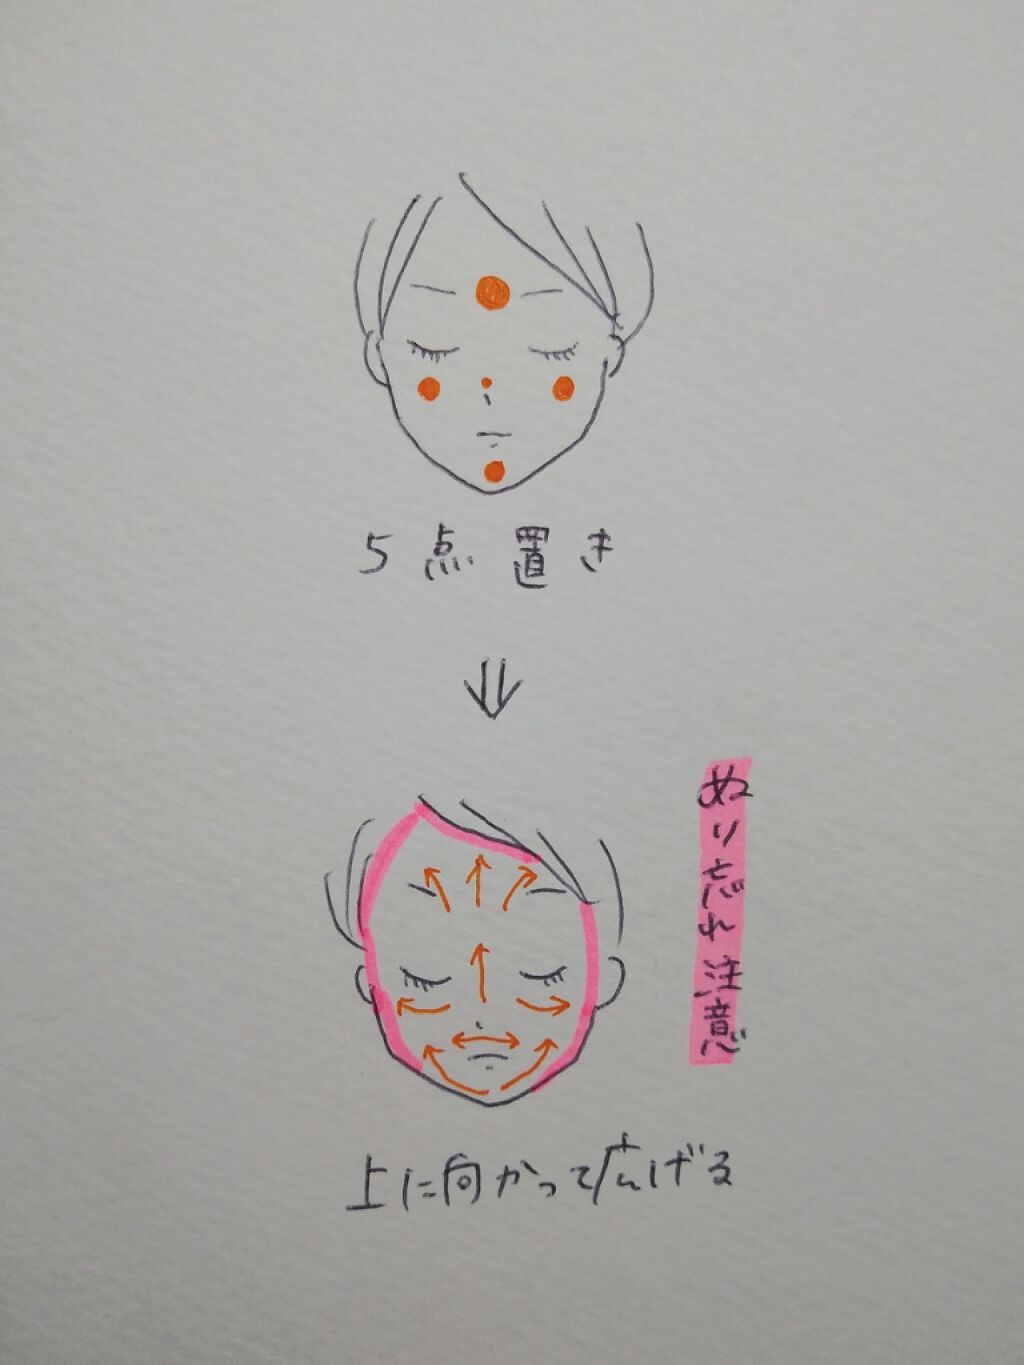 5点置き
ぬり忘れ注意
上に向かって広げる